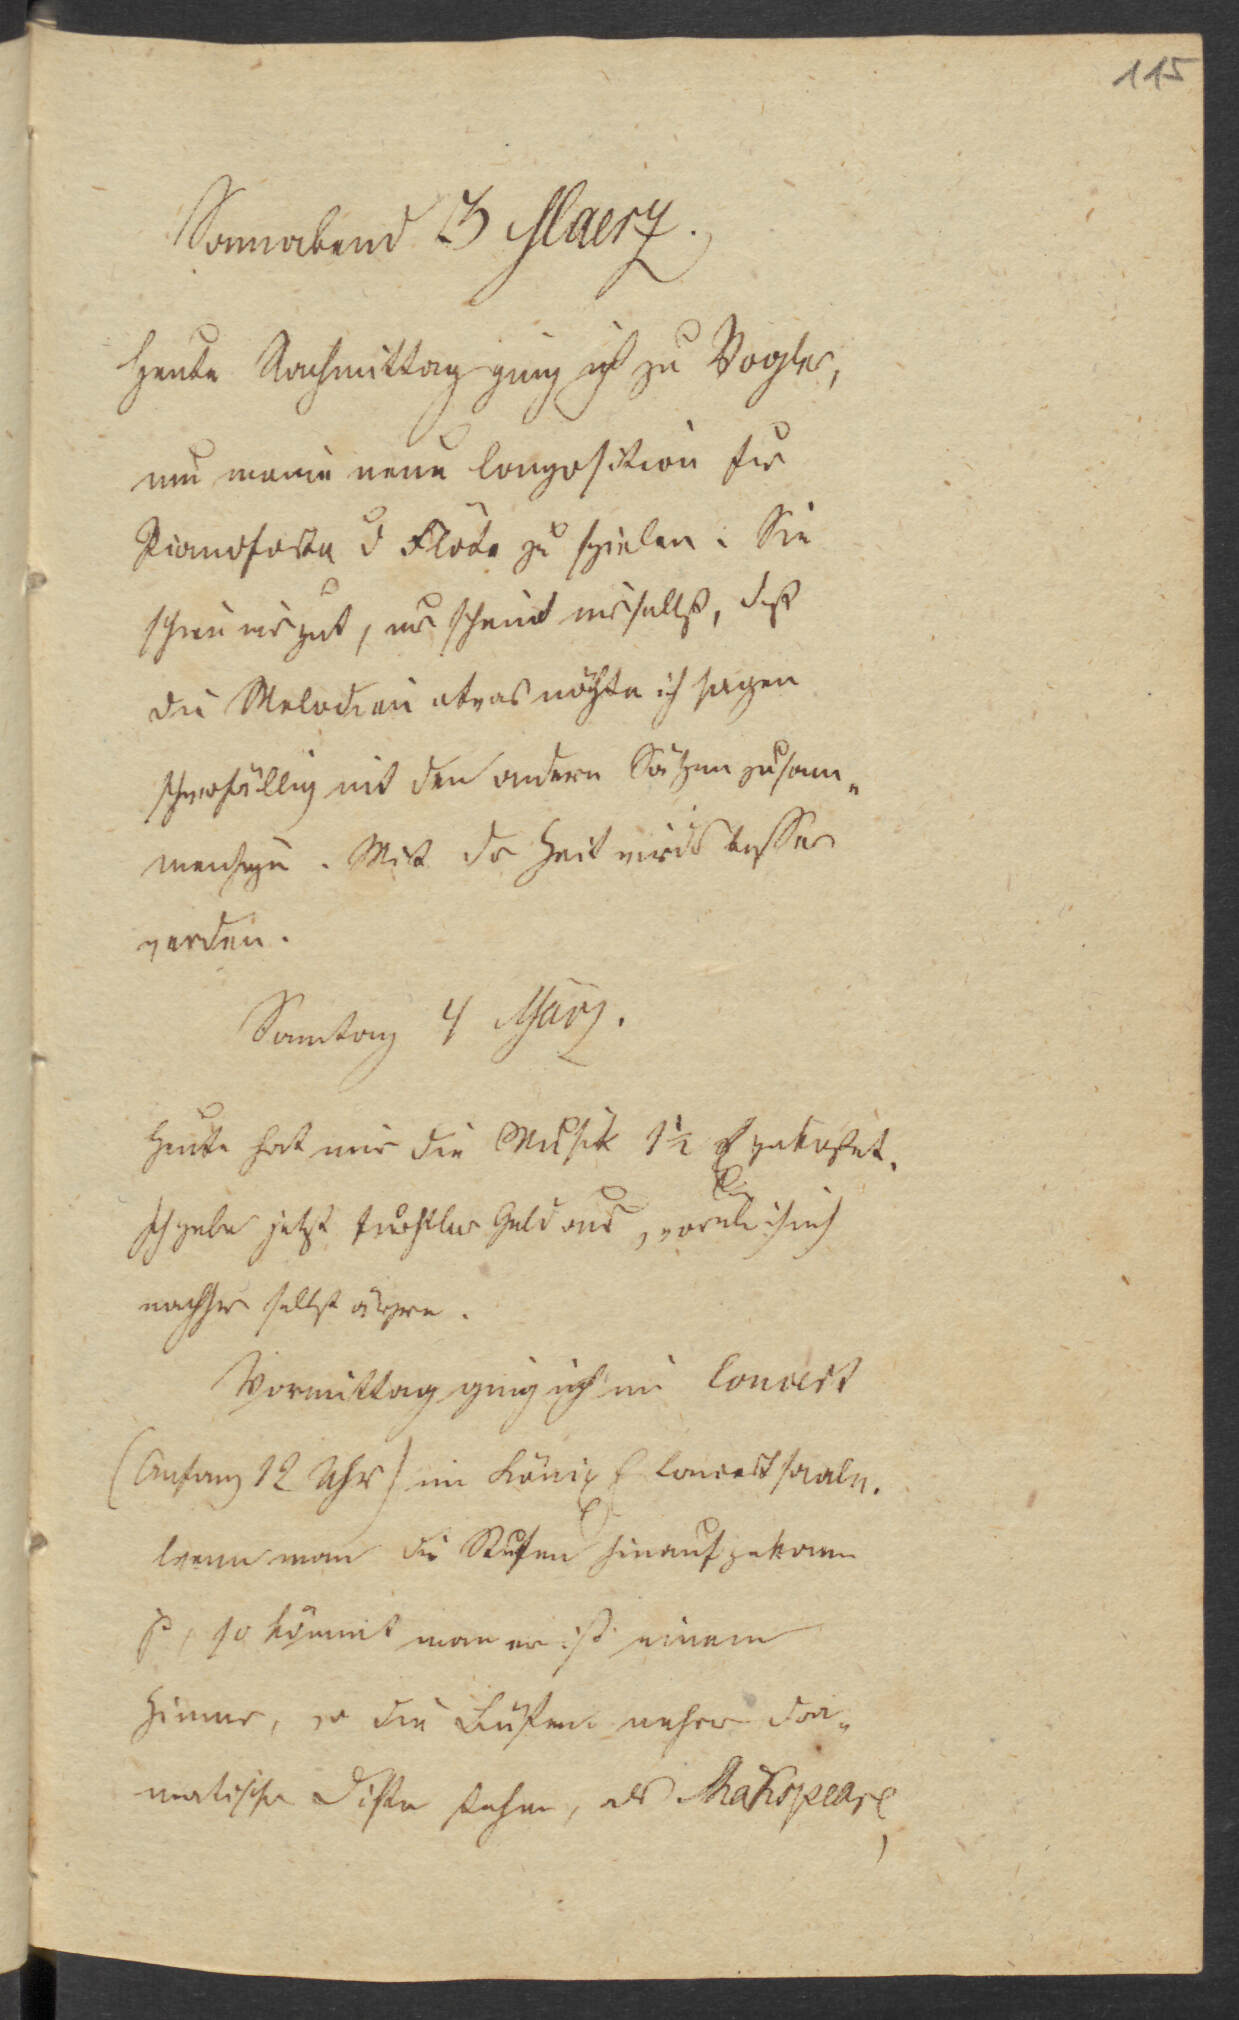 115
Sonnabend 3 Maerz.
Heute Nachmittag ging ich zu Vogler,
um meine neue Composition für
Pianoforte u Flöte zu spielen. Sie
schien mir gut, nur scheint mir selbst, daß
die Melodien etwas möchte ich sagen
schwerfällig mit den andern Sätzen zusam-
menhängen. Mit der Zeit wirds besser
werden.
Sonntag 4 März.
Heute hat mir die Musik 1½ gekostet.
Ich gebe jetzt Geld aus, worüber ich mich
nachher selbst ärgere.
Vormittag ging ich ins Concert
(Anfang 12 Uhr) im Königl Concertsaale.
Wenn man die Stufen hinaufgekommen
ist, so kömmt man erst in einem
Zimmer, wo die Büsten mehrer dra-
matischer Dichter stehen, als Shakspeare,